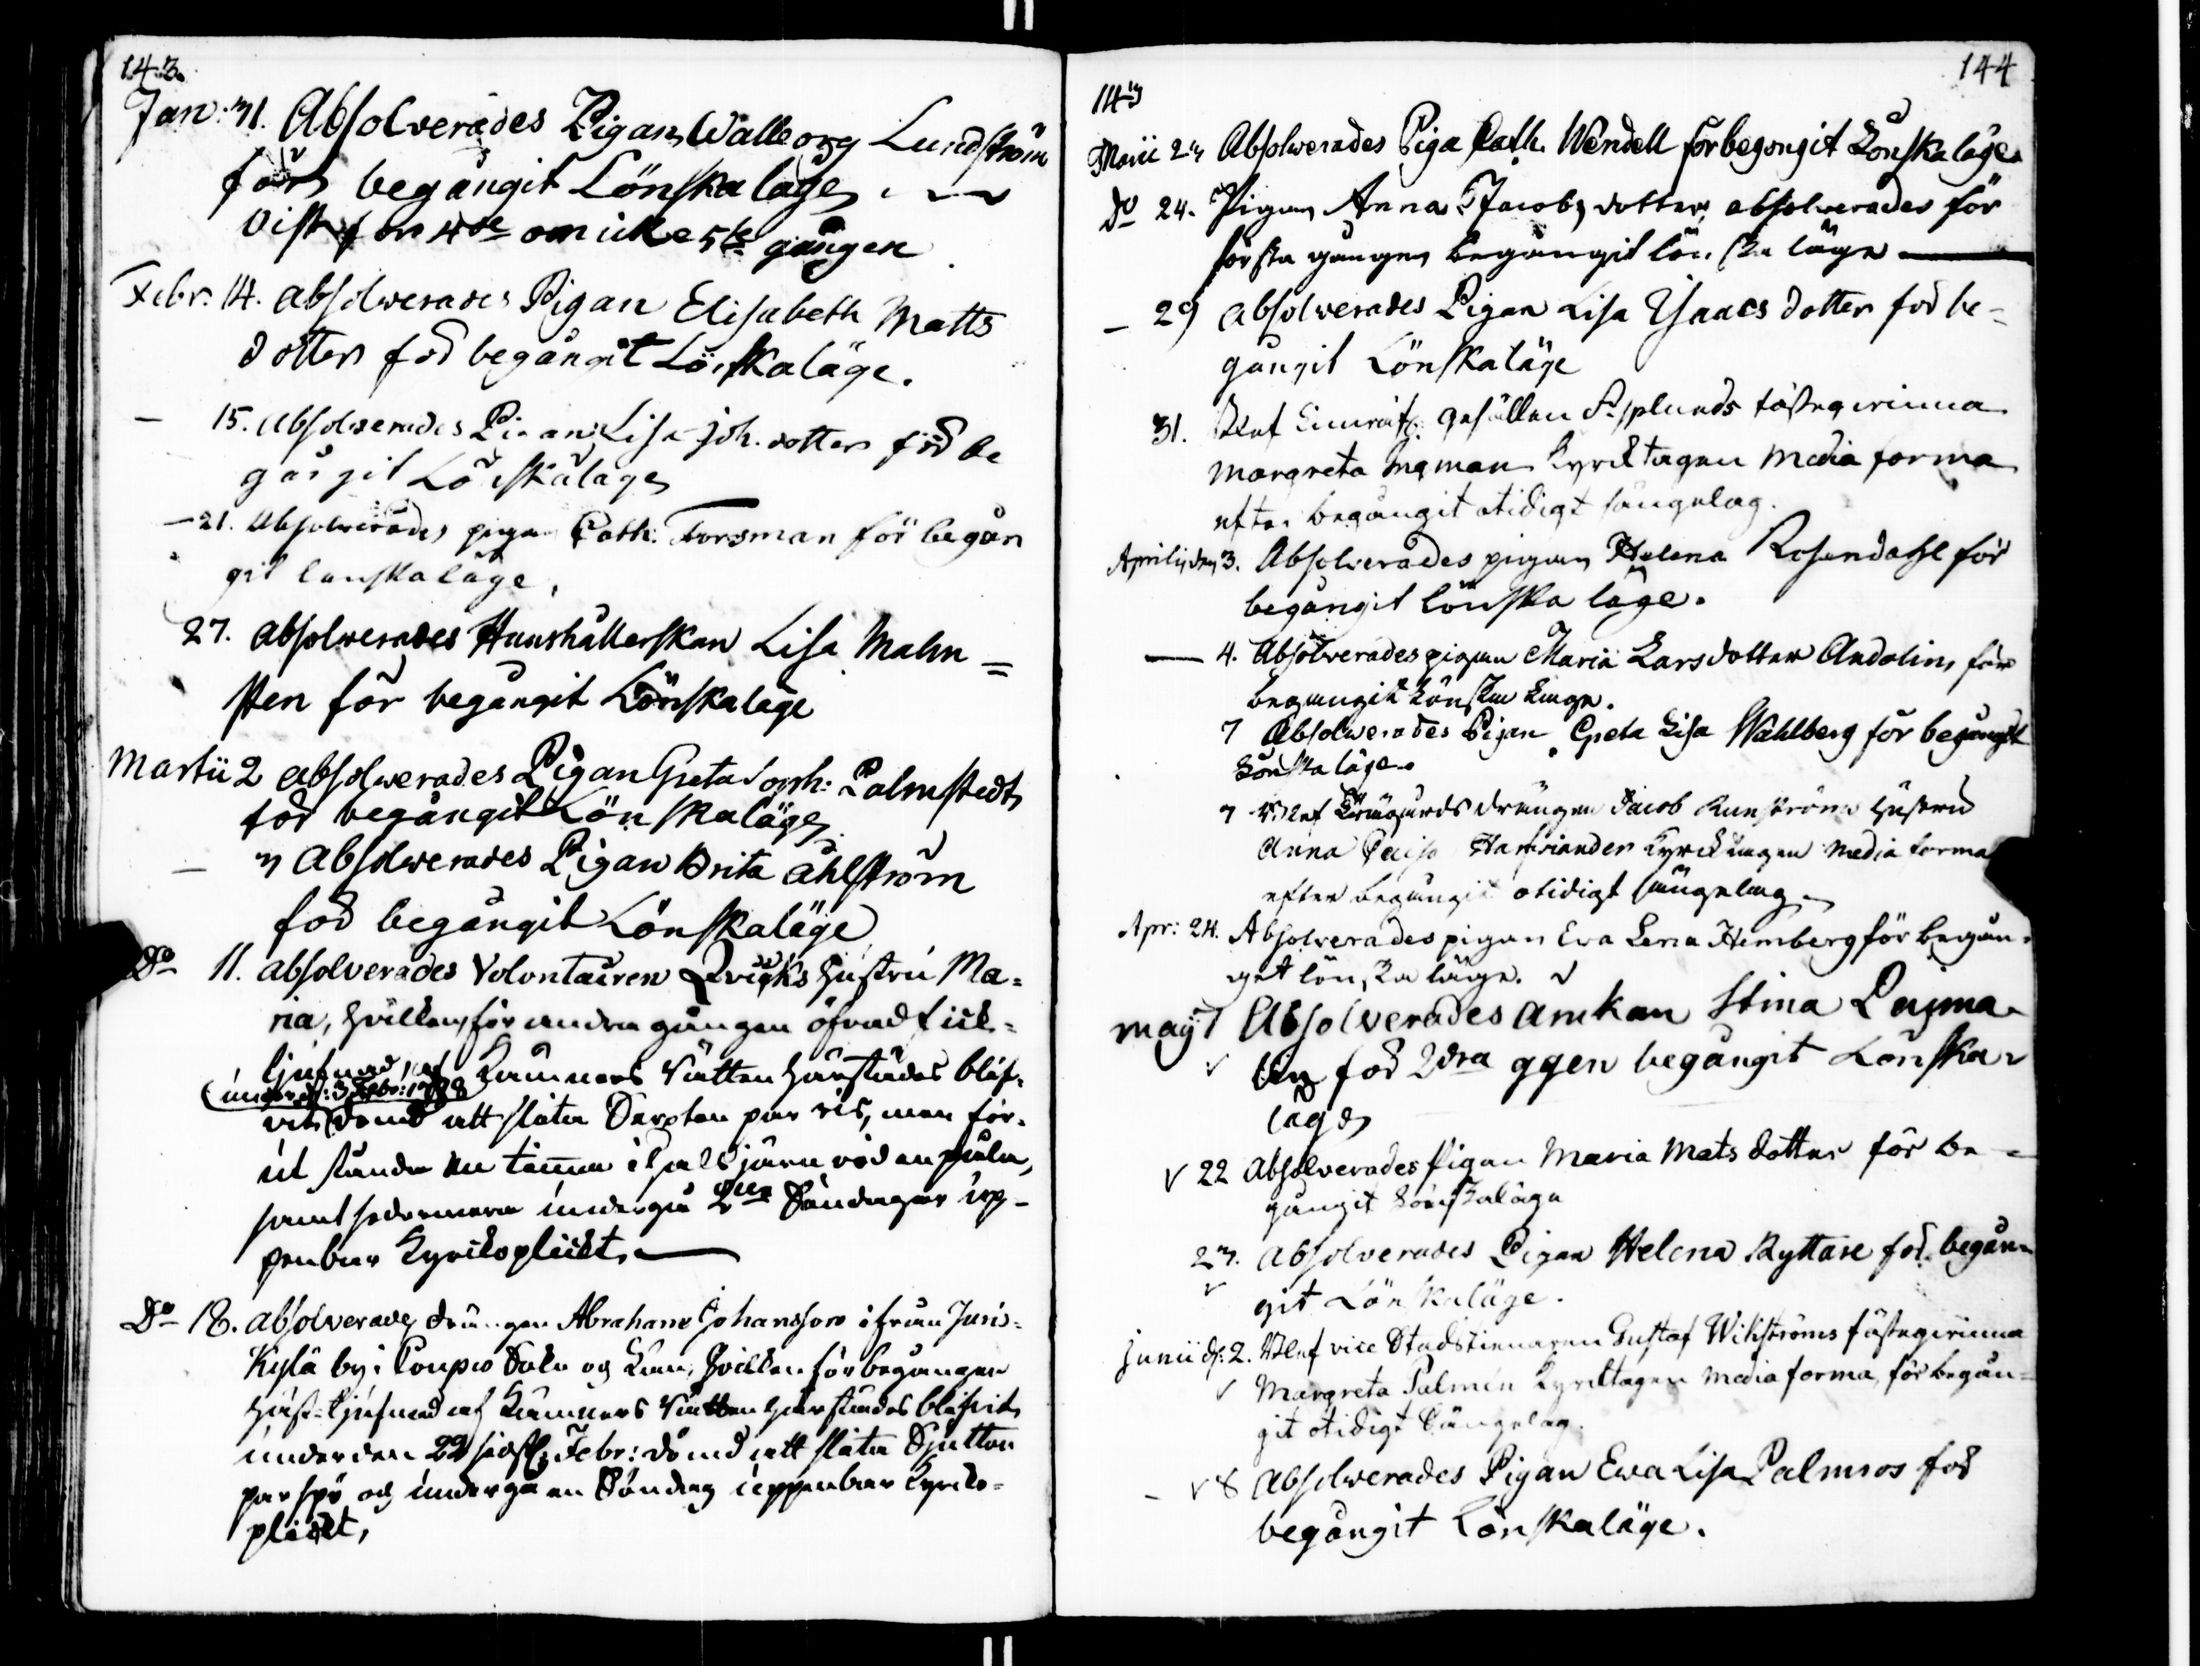 143.
Jan: 31. Absolverades Pigan Walborg Lundström
för begångit Lönskaläge
visst för 4de om icke 5te gången
Febr. 14. absolverades Pigan Elisabeth Matts
dotter för begångit Lönskaläge.
— 15. Absolverades Pigan Lisa Joh. dotter för be
gångit Lönskaläge
— 21. Absolverades pigan Cath: Forsman för begån
git lönskaläge.
27. absolverades Haushållerskan Lisa Malm=
sten för begångit Lönskaläge
Martii 2 absolverades Pigan Greta Soph: Palmstedt
för begångit Lönskaläge
— 3 Absolverades Pigan Brita Åhlström
för begångit Lönskaläge
Do 11. absolverades Volontairen Qvicks hustru Ma=
ria, hvilken för andra gången öfvad
tjufnad, af Kämners Rätten härstädes blif=
(under d: 3 Febr: 1798
vit dömd att slita Sexton par ris, men för=
ut stunda en timma i halsjärn vid en påla,
samt sedermera undergå 2ne Söndagar up=
penbar Kyrkoplickt. —
Do 18. absolverades drängen Abraham Johansson ifrån Juris=
Kylä by i Poupio Sokn och Län, hvilken för begången
häst-tjufnad af Kämners Rätten härstädes blifvit
under den 22 sidstl. Febr: dömd att slita Sjutton
par spö och undergå en Söndag uppenbar Kyrko=
plickt,
144
143
Martii 23 Absolverades Piga Cath. Wendell för begongit Lönskaläge.
do 24. Pigan Anna Jacobs dotter absolverades för
första gången begångit lönska läge —
— 29 absolverades Pigan Lisa Ysaacs dotter för be=
gångit Lönskaläge
31. Blef gesällen Asplunds fästeqvinna
Margreta Ingman Kyrcktagen media forma
efter begångit otidigt sängelag.
Aprilis den 3. Absolverades pigan Helena Rosendahl för
begångit lönska läge.
— 4. Absolverades pigan Maria Larsdotter Andolin för
begångit Lönska Läge.
7 Absolverades Pigan Greta Lisa Wahlberg för begångit
Lönskaläge.
7 Blef drängen Jacob hustru
Anna Caisa Kyrcktagen media forma
efter begångit otidigt sängelag
Apr: 24. Absolverades pigan Eva Lena Hemberg för begån=
git lönska läge.
maji 7 Absolverades ämkan Stina
för 2dra ggen begångit Lönska
läge
22 Absolverades Pigan Maria Mats dotter för be=
gångit Lönskaläge
23. absolverades Pigan Helena Ryttare för begån=
git Lönskaläge.
junii d: 2. Blef vice Stadstienaren Gustaf Wikströms fästeqvinna
Margreta Palmén Kyrcktagen media forma, för begån=
git otidigt Sängelag.
— 8 Absolverades Pigan Ewa Lisa Palmros för
begångit Lönskaläge.